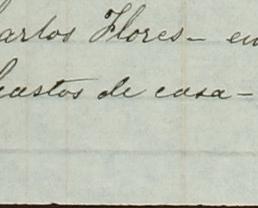 arlos Flores - en
Gastos de casa -